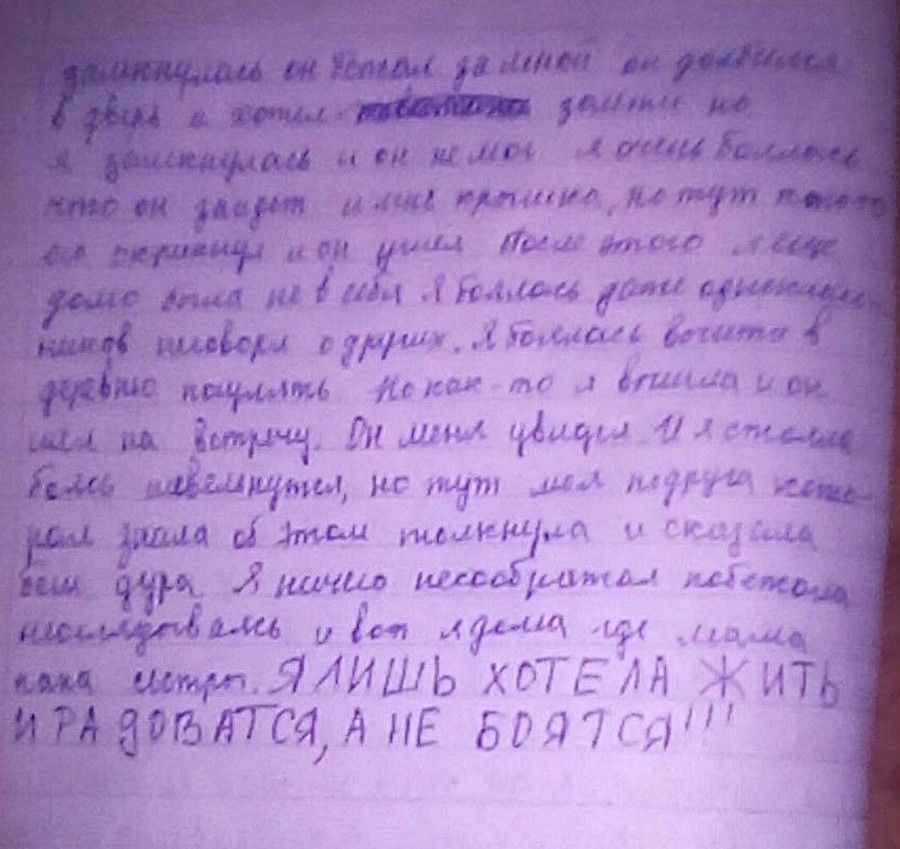 замкнулась он бежал за мной он долбился
в дверь и хотел зайти но
я замкнулась и он не мог я очень боялась
что он зайдет и мне крышка, но тут кто то
его окрикнул и он ушел После этого я еще
долго была не в себя Я боялась даже однокласс
ников неговоря о других. Я боялась выйти в
деревню погулять. Но как-то я вышла и он
шел на встречу. Он меня увидел. И я стояла
боясь шевелнутся, но тут моя подруга кото-
рая знала об этом толкнула и сказала
беги дура Я ничего несооброжая побежала
неоглядоваясь и вот я дома где мама
папа сестры. Я ЛИШЬ ХОТЕЛА ЖИТЬ
И РАДОВАТСЯ, А НЕ БОЯТСЯ!!!